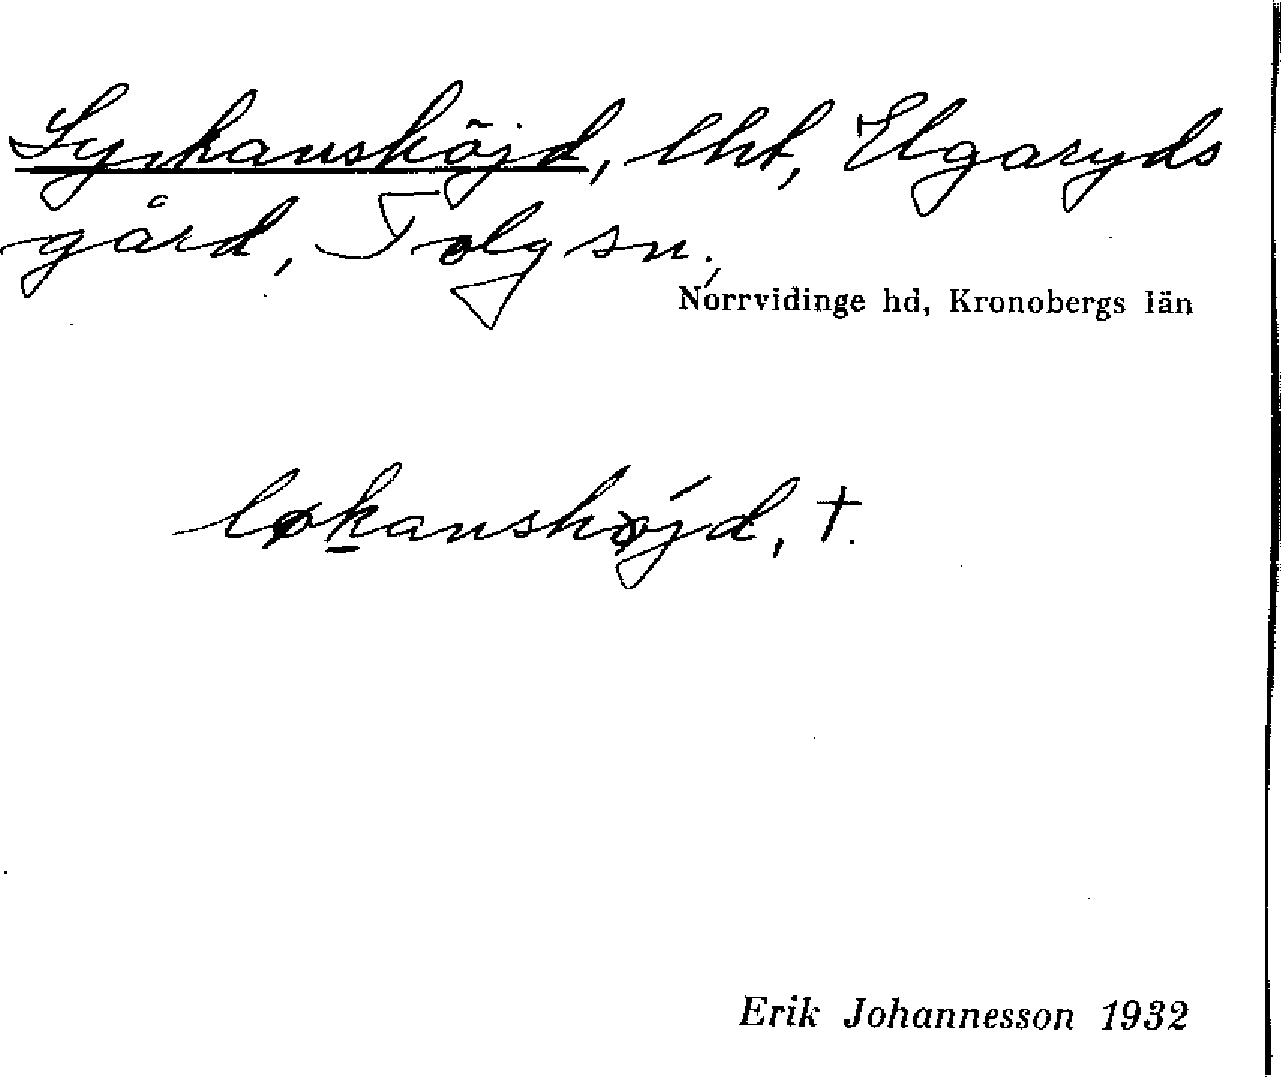 Lyckanshöjd, lht, Elgaryds
gård, Tolg sn.,
Norrvidinge hd, Kronobergs län
løkanshøjd, †.
Erik Johannesson 1932